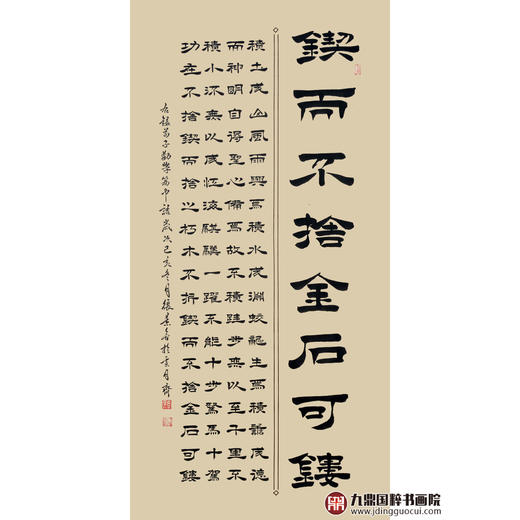 鍥而不捨金石可鏤
積土成山風雨興焉積水成淵蛟龍生焉積善成德
而神明自得聖心備焉故不積跬步無以至千里不
積小流無以成江海騏驥一躍不能十步駑馬十駕
功在不捨鍥而捨之朽木不折鍥而不捨金石可鏤
右錄荀子勸學篇中語歲次己亥冬月張
九鼎国粹书画院
www.jdingguocui.com